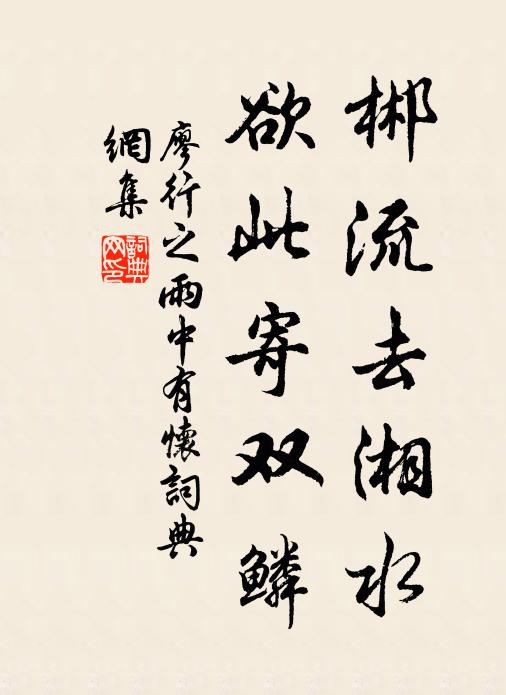 郴流去湘水
欲此寄双鳞
廖行之雨中有懷詞典
網集
詞典網印